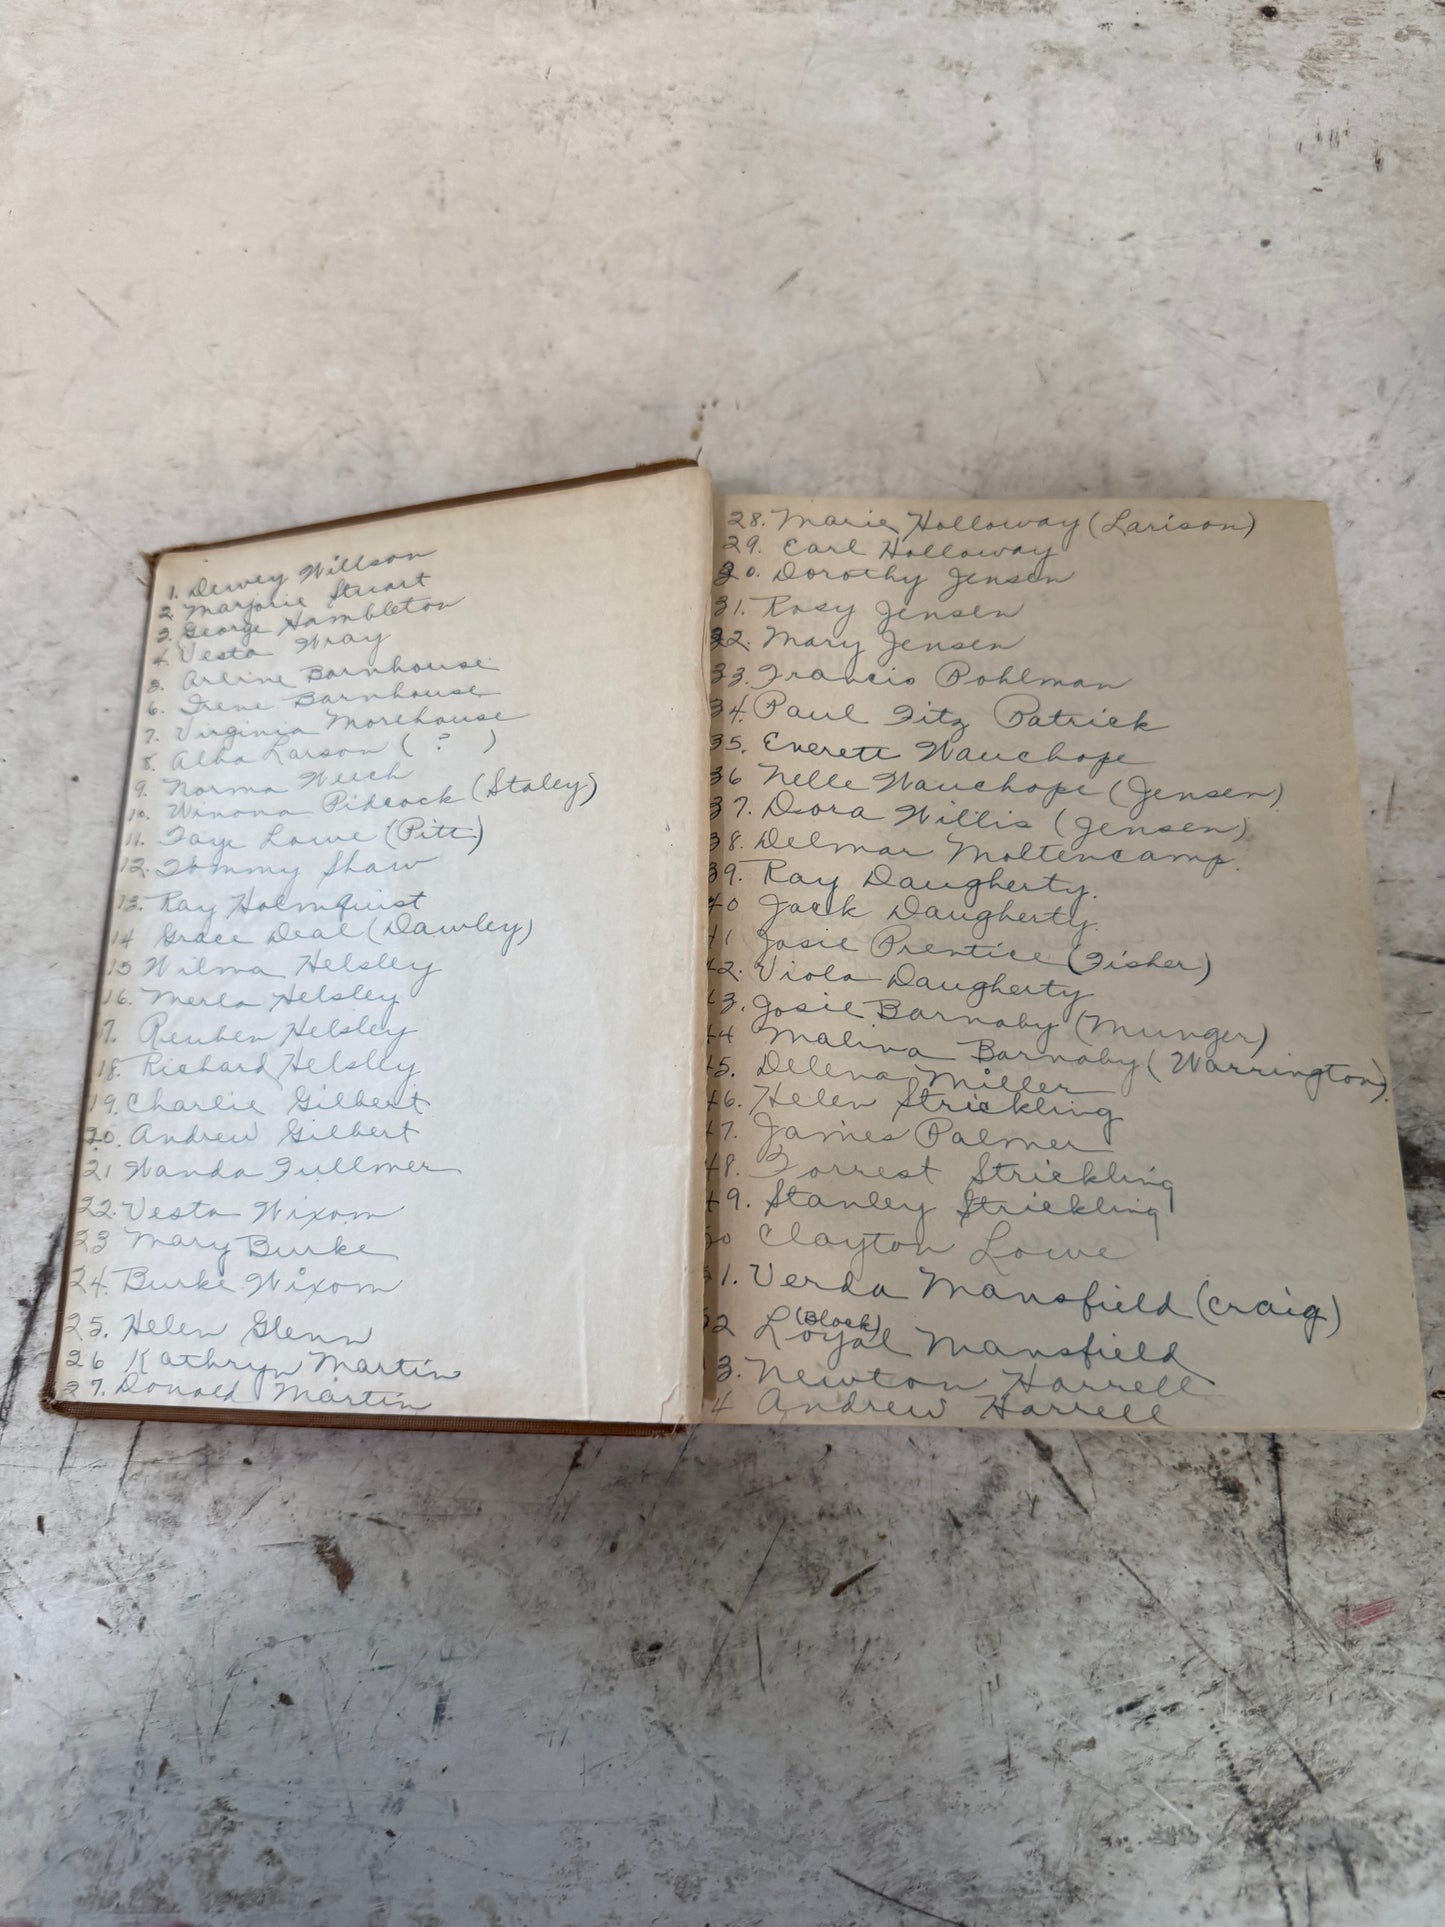 1. Dewey Willson
2. Marjorie Stuart
3. George Hambleton
4. Vesta Wray
5. Arline Barnhouse
6. Irene Barnhouse
7. Virginia Morehouse
8. Alba Larson ( ? )
9. Norma Weech
10. Winona Pidcock (Staley)
11. Faye Lowe (Pitt)
12. Tommy Shaw
13. Ray Holmquist
14 Grace Deal (Dawley)
15 Wilma Helsley
16. Merla Helsley
17. Reuben Helsley
18. Richard Helsley
19. Charlie Gilbert
20. Andrew Gilbert
21 Wanda Fullmer
22. Vesta Wixom
23 Mary Burke
24. Burke Wixom
25. Helen Glenn
26 Kathryn Martin
27. Donald Martin
28. Marie Holloway (Larison)
29. Earl Holloway
30. Dorothy Jensen
31. Rosy Jensen
32. Mary Jensen
33. Francis Pohlman
34. Paul Fitz Patrick
35. Everett Wauchope
36 Nelle Wauchope (Jensen)
37. Dora Willis (Jensen)
38. Delmar Moltencamp.
39. Ray Daugherty.
40 Jack Daugherty.
41 Josie Prentice (Fisher)
42. Viola Daugherty
43. Josie Barnaby (Munger)
44 Malina Barnaby (Warrington).
45. Delena Miller
46. Helen Strickling
47. James Palmer
48. Forrest Strickling
49. Stanley Strickling
50 Clayton Lowe
51. Verda Mansfield (Craig)
(Block)
52 Loyal Mansfield
3. Newton Harrell
4 Andrew Harrell